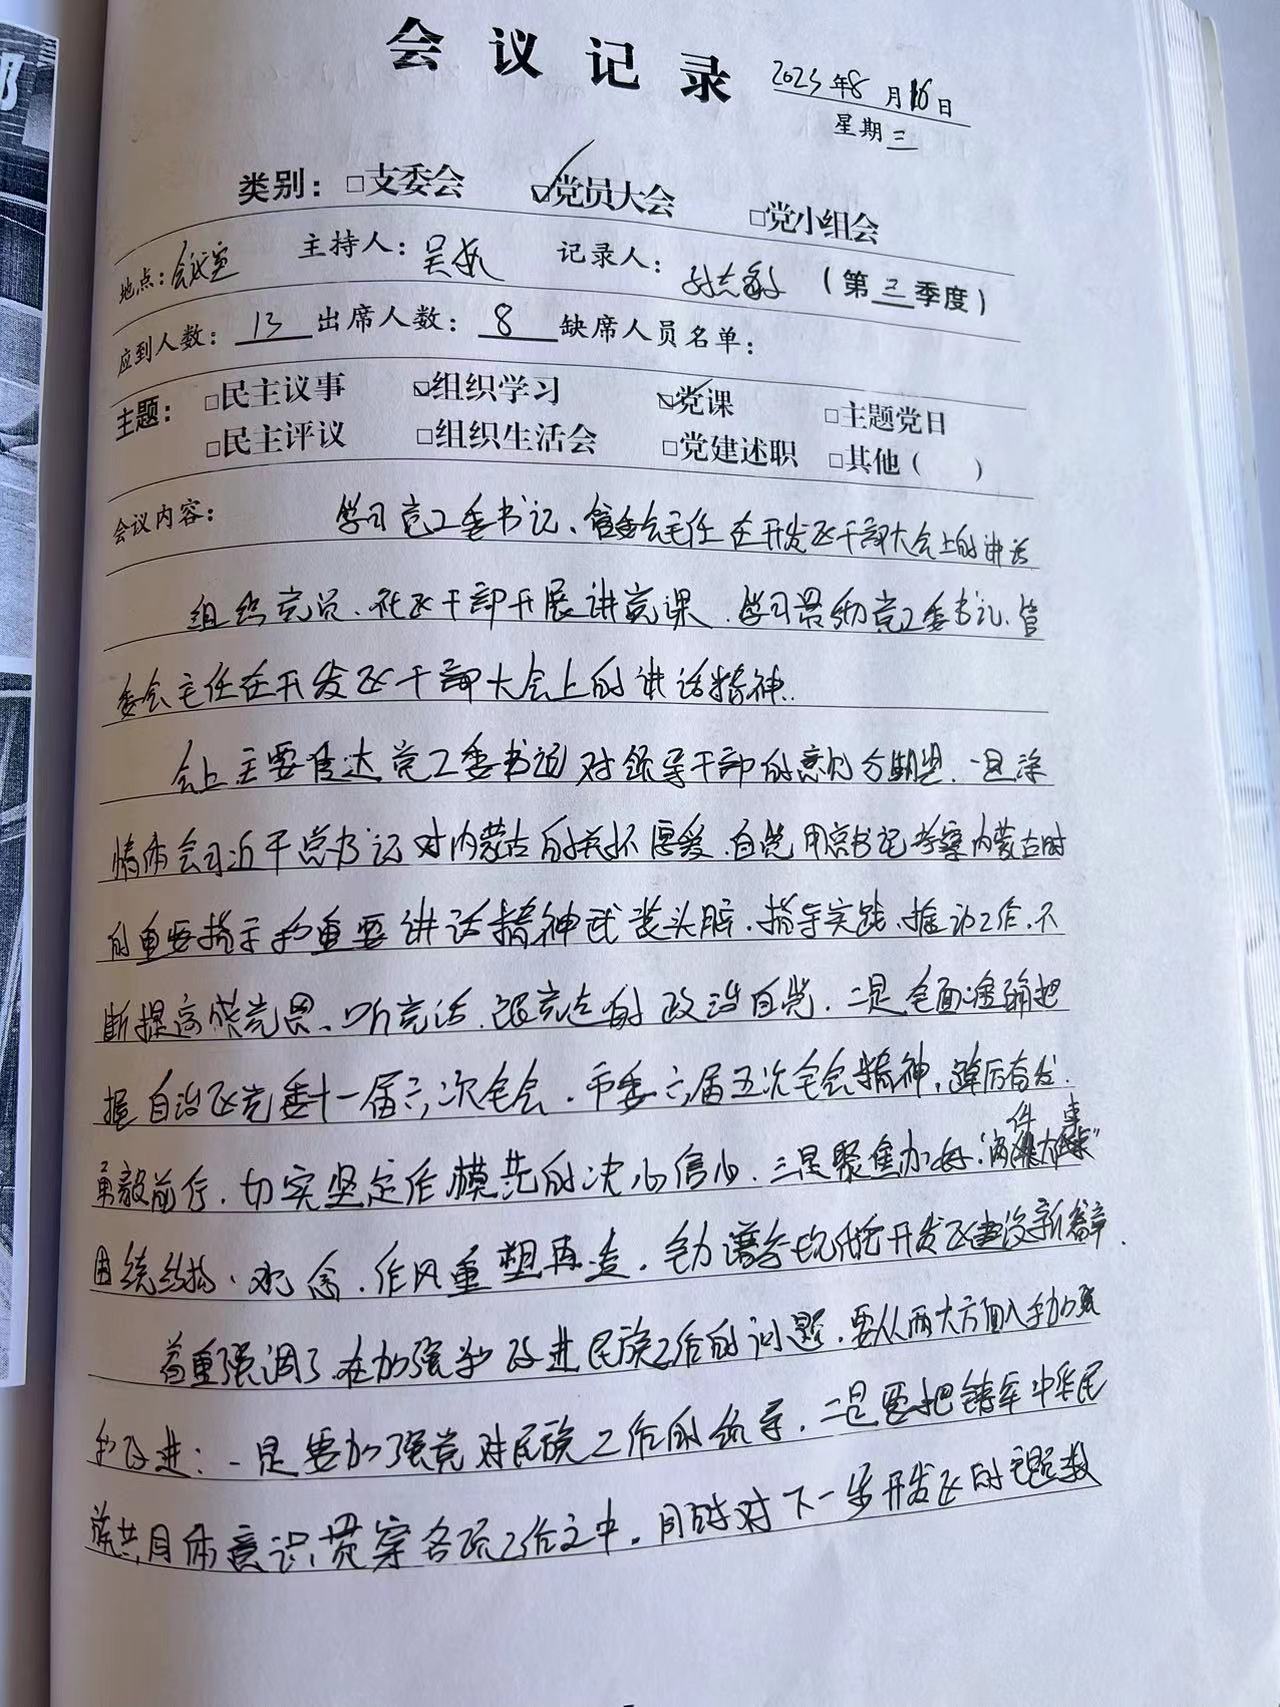 会议记录
2023年8月16日
星期三
类别：□支委会 ☑党员大会 □党小组会
地点：会议室 主持人：吴 记录人：孙志 （第三季度）
应到人数：13 出席人数：8 缺席人员名单：
主题：□民主议事 ☑组织学习 ☑党课 □主题党日
□民主评议 □组织生活会 □党建述职 □其他（ ）
会议内容： 学习党工委书记、管委会主任在开发区干部大会上的讲话
组织党员、社区干部开展讲党课，学习贯彻党工委书记、管
委会主任在开发区干部大会上的讲话精神。
会上主要传达党工委书记对领导干部的意见与期望，一是深
情体会习近平总书记对内蒙古的关怀厚爱，自觉用总书记考察内蒙古时
的重要指示和重要讲话精神武装头脑、指导实践、推动工作，不
断提高感党恩、听党话、跟党走的政治自觉，二是全面准确把
握自治区党委十一届六次全会、市委六届五次全会精神，踔厉奋发、
勇毅前行，切实坚定作模范的决心信心，三是聚焦办好"两件大事"
统结构、观念、作风重塑再造，全力谱写现代化开发区建设新篇章。
着重强调了在加强和改进民族工作的问题，要从两大方面入手加强
和改进：一是要加强党对民族工作的领导，二是要把铸牢中华民
族共同体意识贯穿各项工作之中。同时对下一步开发区的主题教